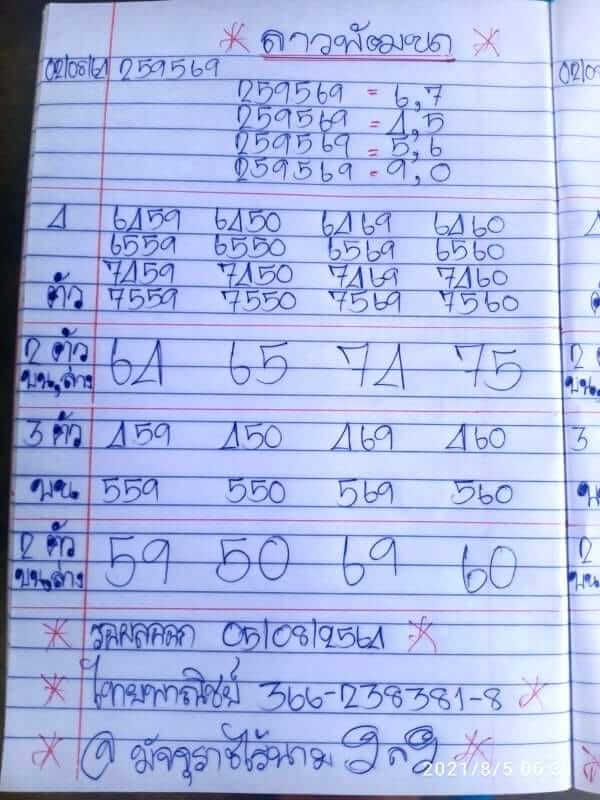 ลาวพัฒนา
02/08/64 259569
259569 = 6,7
259569 = 4,5
259569 = 5,6
259569 = 9,0
4 6459 6450 6469 6460
6559 6550 6569 6560
7459 7450 7469 7460
ตัว 7559 7550 7569 7560
2 ตัว 64 65 74 75
บน,ล่าง
3 ตัว 459 450 469 460
บน 559 550 569 560
2 ตัว 59 50 69 60
บน,ล่าง
รอผลออก 05/08/2564
ไทยพาณิชย์ 366-238381-8
มัจจุราชไร้นาม
2021/8/5 06:3
02/0
2
3
2